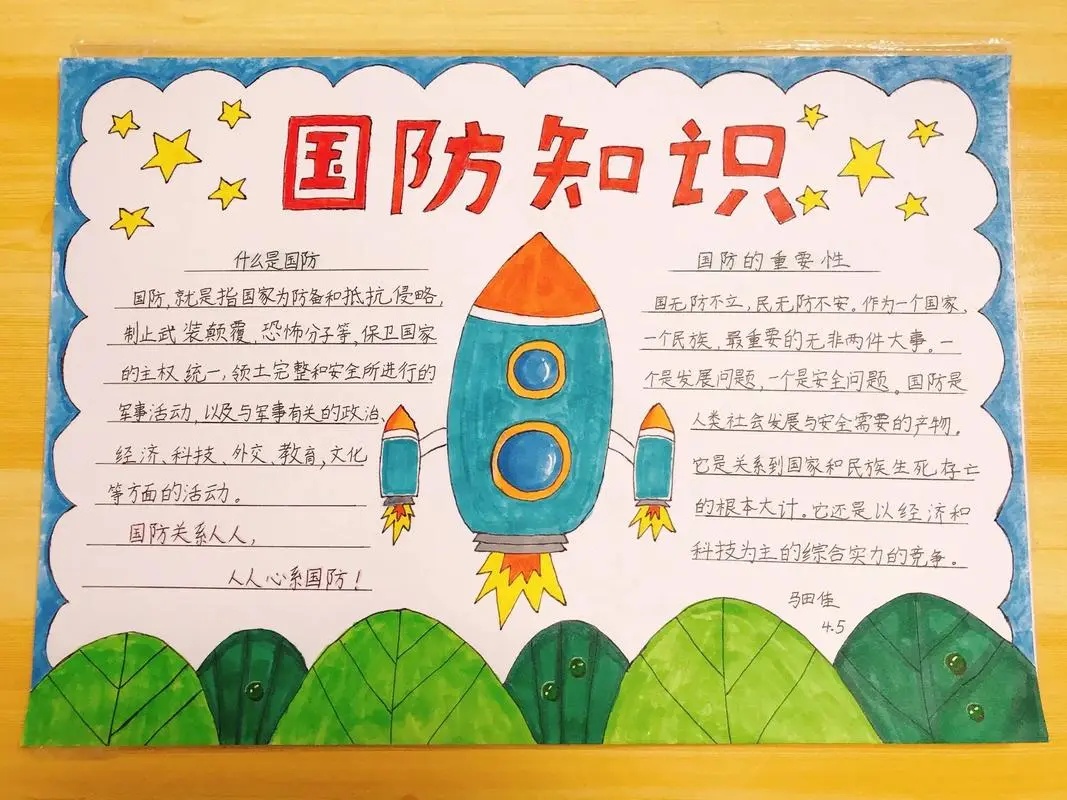 国防知识
什么是国防
国防,就是指国家为防备和抵抗侵略,
制止武装颠覆、恐怖分子等,保卫国家
的主权统一,领土完整和安全所进行的
军事活动,以及与军事有关的政治、
经济、科技、外交、教育,文化
等方面的活动。
国防关系人人,
人人心系国防!
国防的重要性
国无防不立,民无防不安。作为一个国家、
一个民族,最重要的无非两件大事。一
个是发展问题,一个是安全问题。国防是
人类社会发展与安全需要的产物。
它是关系到国家和民族生死存亡
的根本大计。它还是以经济和
科技为主的综合实力的竞争。
马田佳
4.5